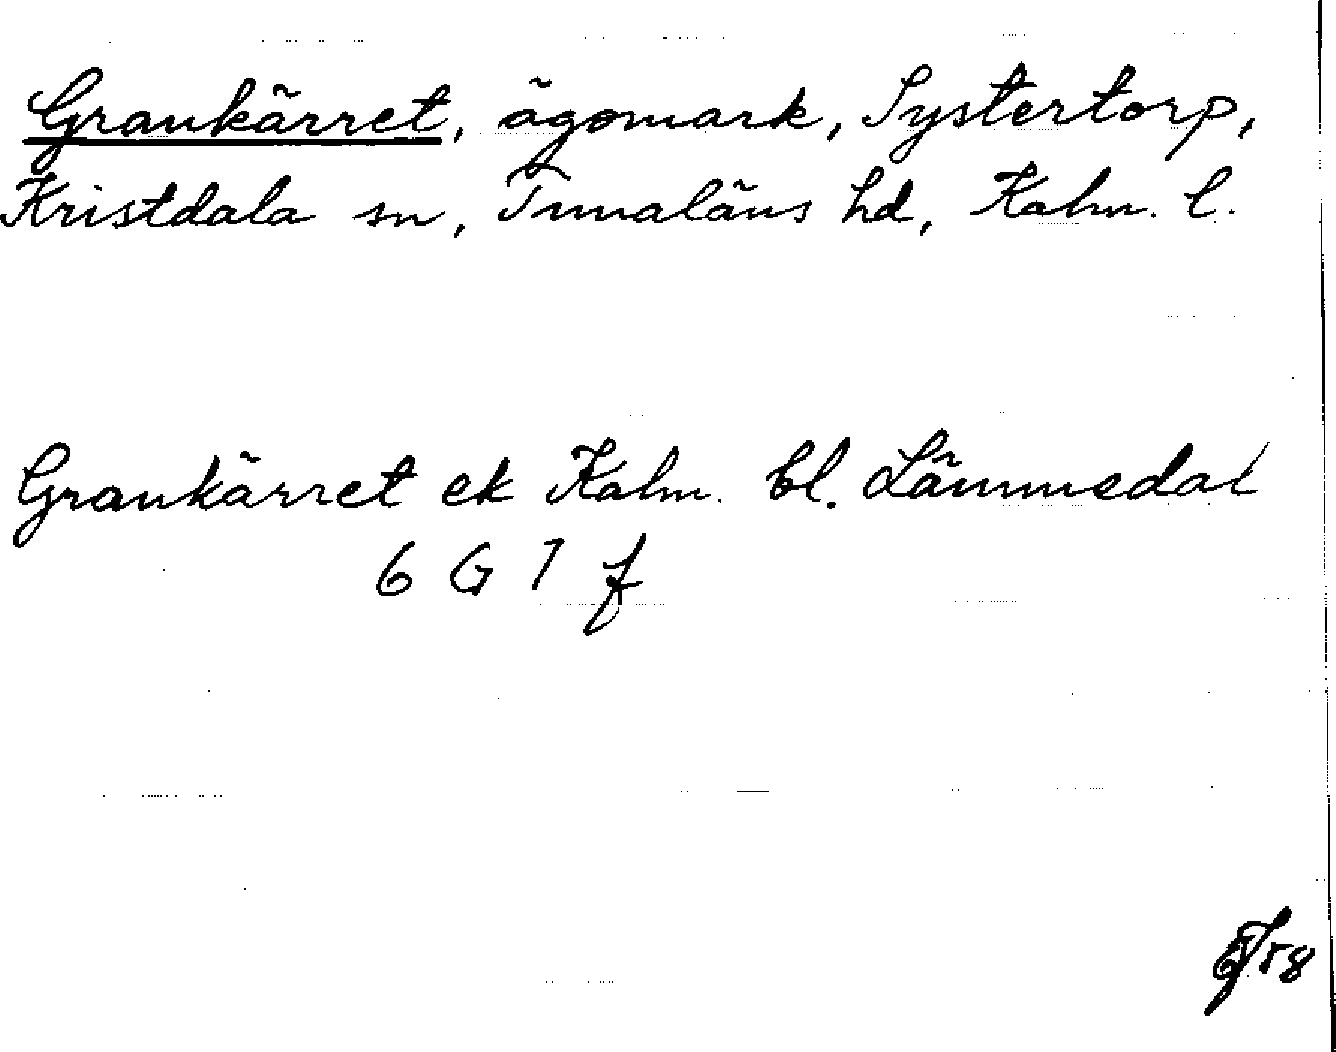 Grankärret, ägomark, Systertorp,
Kristdala sn, Tunaläns hd, Kalm. l.
Grankärret ek Kalm. bl. Lämmedal
6 G 7 f